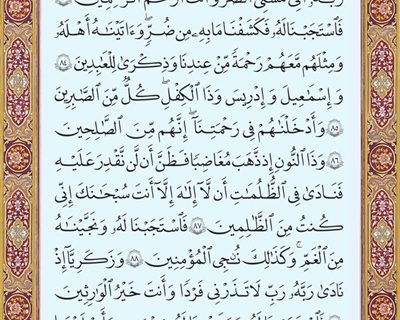 فَٱسْتَجَبْنَا لَهُۥ فَكَشَفْنَا مَا بِهِۦ مِن ضُرٍّۖ وَءَاتَيْنَٰهُ أَهْلَهُۥ
وَمِثْلَهُم مَّعَهُمْ رَحْمَةً مِّنْ عِندِنَا وَذِكْرَىٰ لِلْعَٰبِدِينَ ٨٤
وَإِسْمَٰعِيلَ وَإِدْرِيسَ وَذَا ٱلْكِفْلِۖ كُلٌّ مِّنَ ٱلصَّٰبِرِينَ
٨٥ وَأَدْخَلْنَٰهُمْ فِى رَحْمَتِنَآۖ إِنَّهُم مِّنَ ٱلصَّٰلِحِينَ
٨٦ وَذَا ٱلنُّونِ إِذ ذَّهَبَ مُغَٰضِبًا فَظَنَّ أَن لَّن نَّقْدِرَ عَلَيْهِ
فَنَادَىٰ فِى ٱلظُّلُمَٰتِ أَن لَّآ إِلَٰهَ إِلَّآ أَنتَ سُبْحَٰنَكَ إِنِّى
كُنتُ مِنَ ٱلظَّٰلِمِينَ ٨٧ فَٱسْتَجَبْنَا لَهُۥ وَنَجَّيْنَٰهُ
مِنَ ٱلْغَمِّۚ وَكَذَٰلِكَ نُۨجِى ٱلْمُؤْمِنِينَ ٨٨ وَزَكَرِيَّآ إِذْ
نَادَىٰ رَبَّهُۥ رَبِّ لَا تَذَرْنِى فَرْدًا وَأَنتَ خَيْرُ ٱلْوَٰرِثِينَ